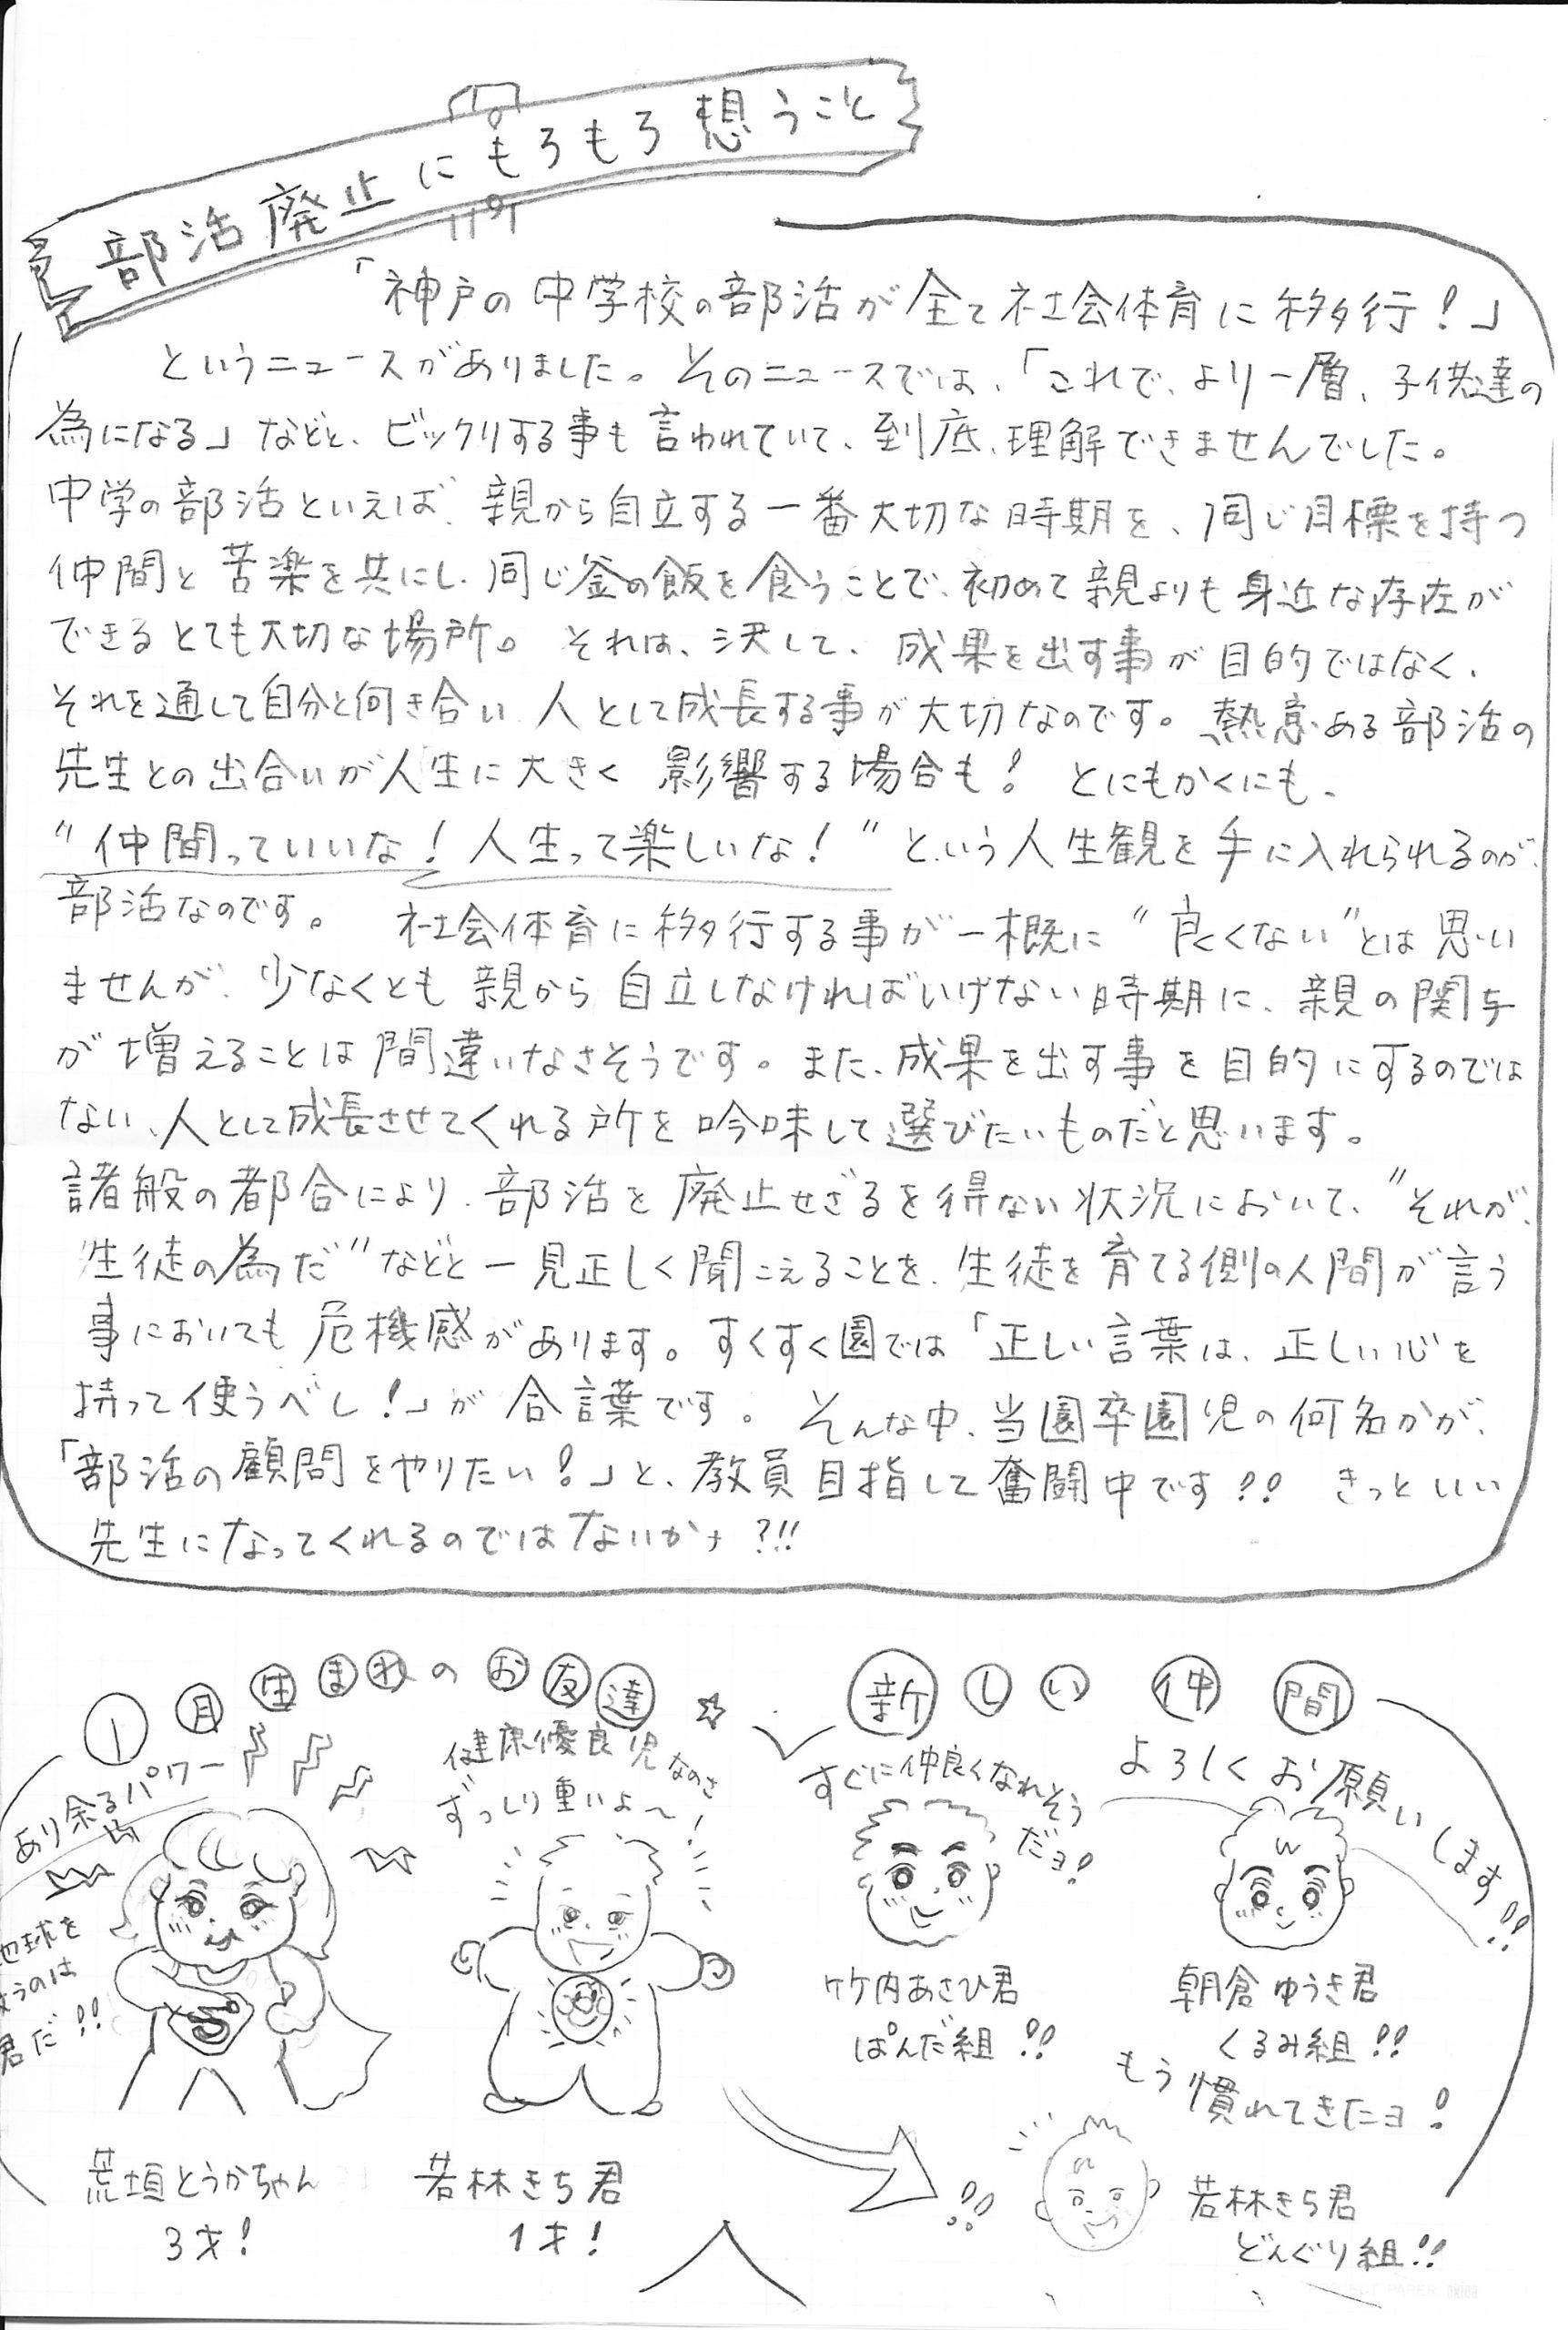 部活廃止にもろもろ想うこと
「神戸の中学校の部活が全て社会体育に移行!」
というニュースがありました。そのニュースでは、「これで、より一層、子供達の
為になる」などと、ビックリする事も言われていて、到底、理解できませんでした。
中学の部活といえば、親から自立する一番大切な時期を、同じ目標を持つ
仲間と苦楽を共にし、同じ釜の飯を食うことで、初めて親よりも身近な存在が
できるとても大切な場所。それは、決して、成果を出す事が目的ではなく、
それを通して自分と向き合い、人として成長する事が大切なのです。熱意ある部活の
先生との出合いが人生に大きく影響する場合も! とにもかくにも、
"仲間っていいな!人生って楽しいな!"という人生観を手に入れられるのが、
部活なのです。 社会体育に移行する事が一概に"良くない"とは思い
ませんが、少なくとも親から自立しなければいけない時期に、親の関与
が増えることは間違いなさそうです。また、成果を出す事を目的にするのでは
ない、人として成長させてくれる所を吟味して選びたいものだと思います。
諸般の都合により、部活を廃止せざるを得ない状況において、"それが、
生徒の為だ"などと一見正しく聞こえることを、生徒を育てる側の人間が言う
事においても危機感があります。すくすく園では「正しい言葉は、正しい心を
持って使うべし!」が合言葉です。そんな中、当園卒園児の何名かが、
「部活の顧問をやりたい!」と、教員目指して奮闘中です!! きっといい
先生になってくれるのではないかナ?!!
1月生まれのお友達☆
あり余るパワー
地球を
救うのは
君だ!!
健康優良児なのさ
ずっしり重いよ〜!
荒垣とうかちゃん
3才!
若林きち君
1才!
新しい仲間
よろしくお願いします!!
すぐに仲良くなれそう
だヨ!
竹内あさひ君
ぱんだ組!!
朝倉ゆうき君
くるみ組!!
もう慣れてきたヨ!
!!
若林きら君
どんぐり組!!